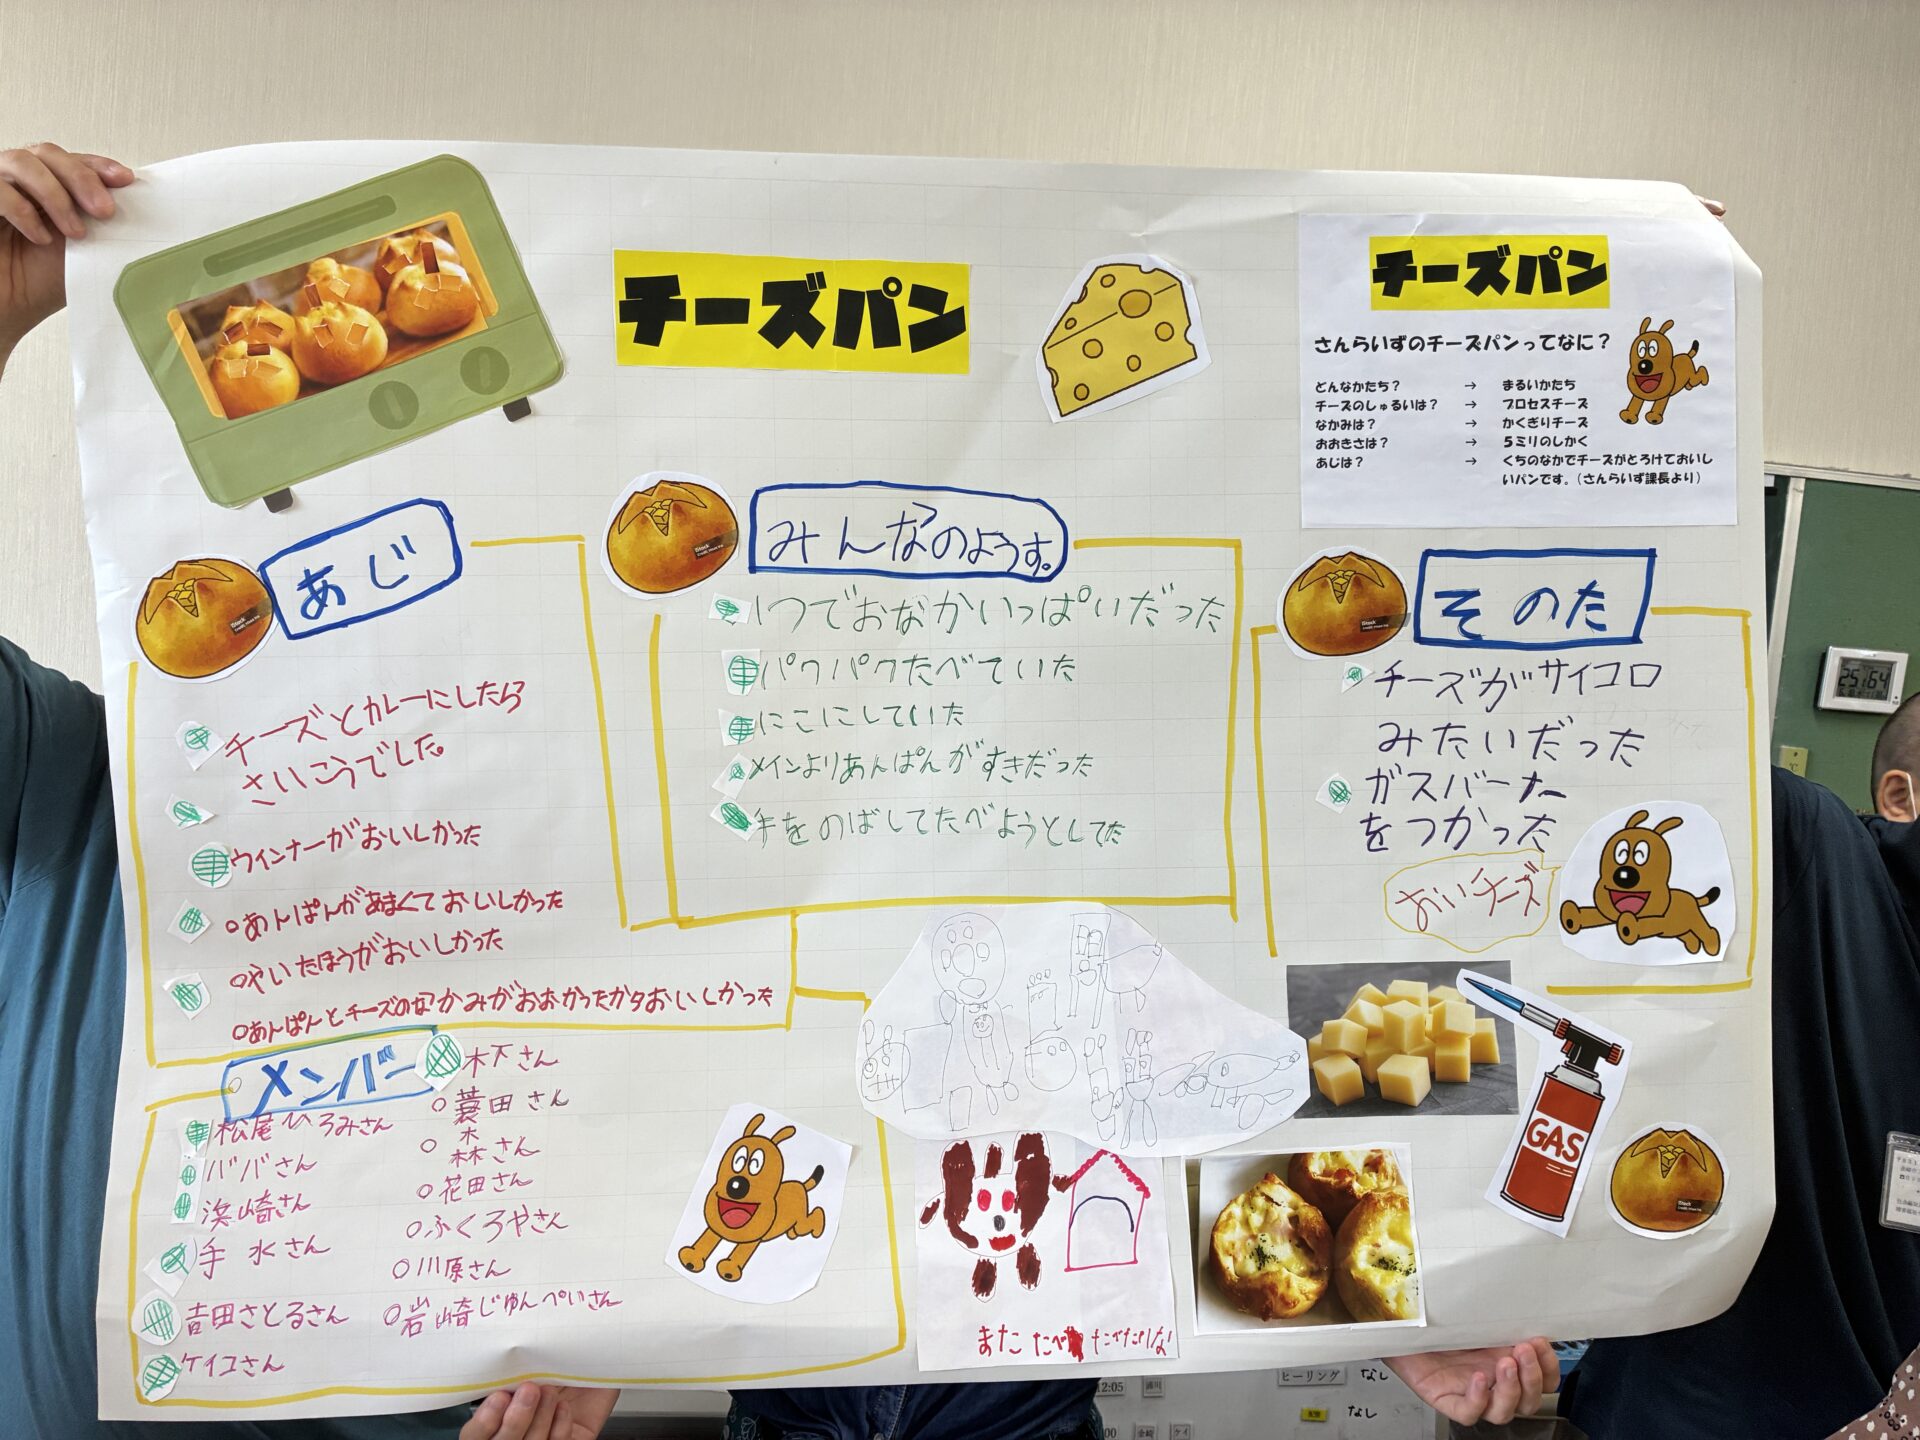 チーズパン
チーズパン
さんらいずのチーズパンってなに？
どんなかたち？ → まるいかたち
チーズのしゅるいは？ → プロセスチーズ
なかみは？ → かくぎりチーズ
おおきさは？ → 5ミリのしかく
あじは？ → くちのなかでチーズがとろけておいし
いパンです。（さんらいず課長より）
あじ
チーズとカレーにしたら
さいこうでした。
ウインナーがおいしかった
○あんぱんがあまくておいしかった
○やいたほうがおいしかった
○あんぱんとチーズのなかみがおおかったカタおいしかった
みんなのようす。
1つでおなかいっぱいだった
パクパクたべていた
にこにこしていた
メインよりあんぱんがすきだった
手をのばしてたべようとしてた
そのた
チーズがサイコロ
みたいだった
ガスバーナー
をつかった
おいチーズ
メンバー
松尾ひろみさん
ババさん
浜崎さん
手水さん
吉田さとるさん
ケイコさん
木下さん
○蓑田さん
○森さん
○花田さん
○ふくろやさん
○川原さん
○岩崎じゅんぺいさん
また たべ
GAS
iStock
iStock
iStock
iStock
12:05
ヒーリング なし
なし